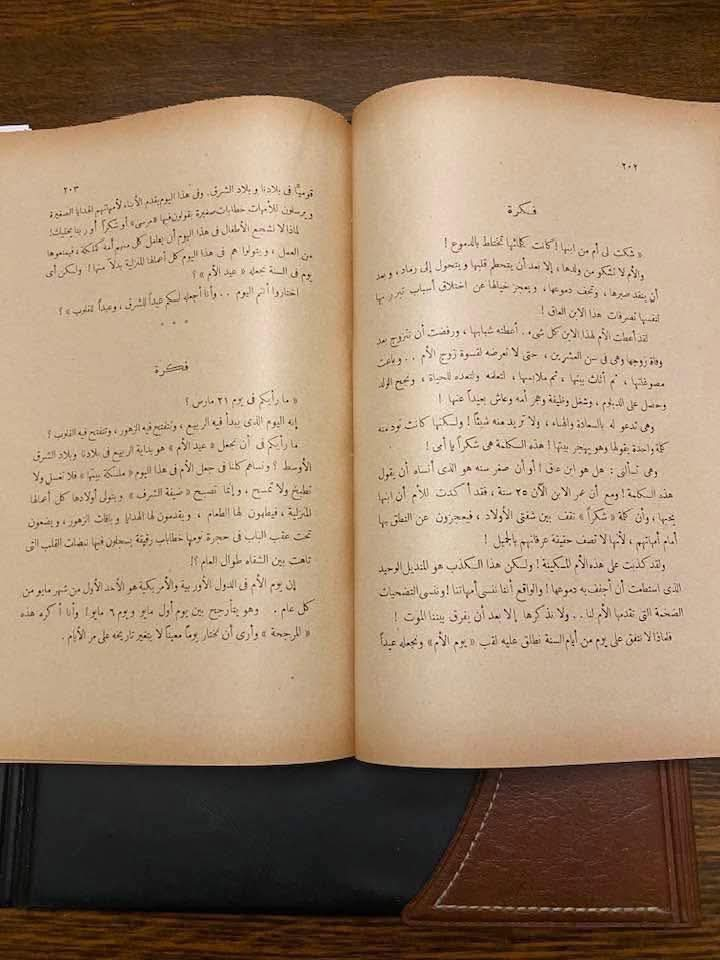 ٢٠٢
فكرة
« شكت لى أم من ابنها ! كانت كلماتها تختلط بالدموع !
والأم لا تشكو من ولدها ، إلا بعد أن يتحطم قلبها ويتحول إلى رماد ، وبعد
أن ينفد صبرها ، وتجف دموعها ، ويعجز خيالها عن اختلاق أسباب تبرر بها
لنفسها تصرفات هذا الابن العاق !
لقد أعطت الأم لهذا الابن كل شىء . أعطته شبابها ، ورفضت أن تتزوج بعد
وفاة زوجها وهى فى سن العشرين ، حتى لا تعرضه لقسوة زوج الأم . . وباعت
مصوغاتها ، ثم أثاث بيتها ، ثم ملابسها ، لتعلمه ولتعده للحياة ، ونجح الولد
وحصل على الدبلوم ، وشغل وظيفة وهجر أمه وعاش بعيداً عنها !
وهى تدعو له بالسعادة والهناء ، ولا تريد منه شيئاً ! ولكنها كانت تود منه
كلمة واحدة يقولها وهو يهجر بيتها ! هذه الكلمة هى شكراً يا أمى !
وهى تسألنى : هل هو ابن عاق ! أو أن صغر سنه هو الذى أنساه أن يقول
هذه الكلمة ! ومع أن عمر الابن الآن ٢٥ سنة ، فقد أكدت للأم أن ابنها
يحبها ، وأن كلمة « شكراً » تقف بين شفتى الأولاد ، فيعجزون عن النطق بها
أمام أمهاتهم ، لأنها لا تصف حقيقة عرفانهم بالجميل !
ولقد كذبت على هذه الأم المسكينة ! ولكن هذا الكذب هو المنديل الوحيد
الذى استطعت أن أجفف به دموعها ! والواقع أننا ننسى أمهاتنا ! وننسى التضحيات
الضخمة التى تقدمها الأم لنا . . ولا نذكرها إلا بعد أن يفرق بيننا الموت !
فلماذا لا نتفق على يوم من أيام السنة نطلق عليه لقب « يوم الأم » ونجعله عيداً
٢٠٣
قومياً فى بلادنا وبلاد الشرق . وفى هذا اليوم يقدم الأبناء لأمهاتهم الهدايا الصغيرة
ويرسلون للأمهات خطابات صغيرة يقولون فيها « مرسى » أو شكراً أو ربنا يخليك !
لماذا لا نشجع الأطفال فى هذا اليوم أن يعامل كل منهم أمه كملكة ، فيمنعوها
من العمل ، ويتولوا هم فى هذا اليوم كل أعمالها المنزلية بدلاً منها ! ولكن أى
يوم فى السنة نجعله « عيد الأم » ؟
اختاروا أنتم اليوم . . وأنا أجعله لكم عيداً للشرق ، وعيداً للقلوب » ؟
* * *
فكرة
« ما رأيكم فى يوم ٢١ مارس ؟
إنه اليوم الذى يبدأ فيه الربيع ، وتتفتح فيه الزهور ، وتتفتح فيه القلوب ؟
ما رأيكم فى أن نجعل « عيد الأم » هو بداية الربيع فى بلادنا وبلاد الشرق
الأوسط ؟ ونساهم كلنا فى جعل الأم فى هذا اليوم « ملكة بيتها » فلا تغسل ولا
تطبخ ولا تمسح ، وإنما تصبح « ضيفة الشرف » ويتولى أولادها كل أعمالها
المنزلية ، فيطهون لها الطعام ، ويقدمون لها الهدايا وباقات الزهور ، ويضعون
تحت عقب الباب فى حجرة نومها خطابات رقيقة يسجلون فيها نبضات القلب التى
تاهت بين الشفاه طوال العام ؟!
إن يوم الأم فى الدول الأوربية والأمريكية هو الأحد الأول من شهر مايو من
كل عام . وهو يتأرجح بين يوم أول مايو ويوم ٦ مايو ! وأنا أكره هذه
« المرجحة » وأرى أن نختار يوماً معيناً لا يتغير تاريخه على مر الأيام .